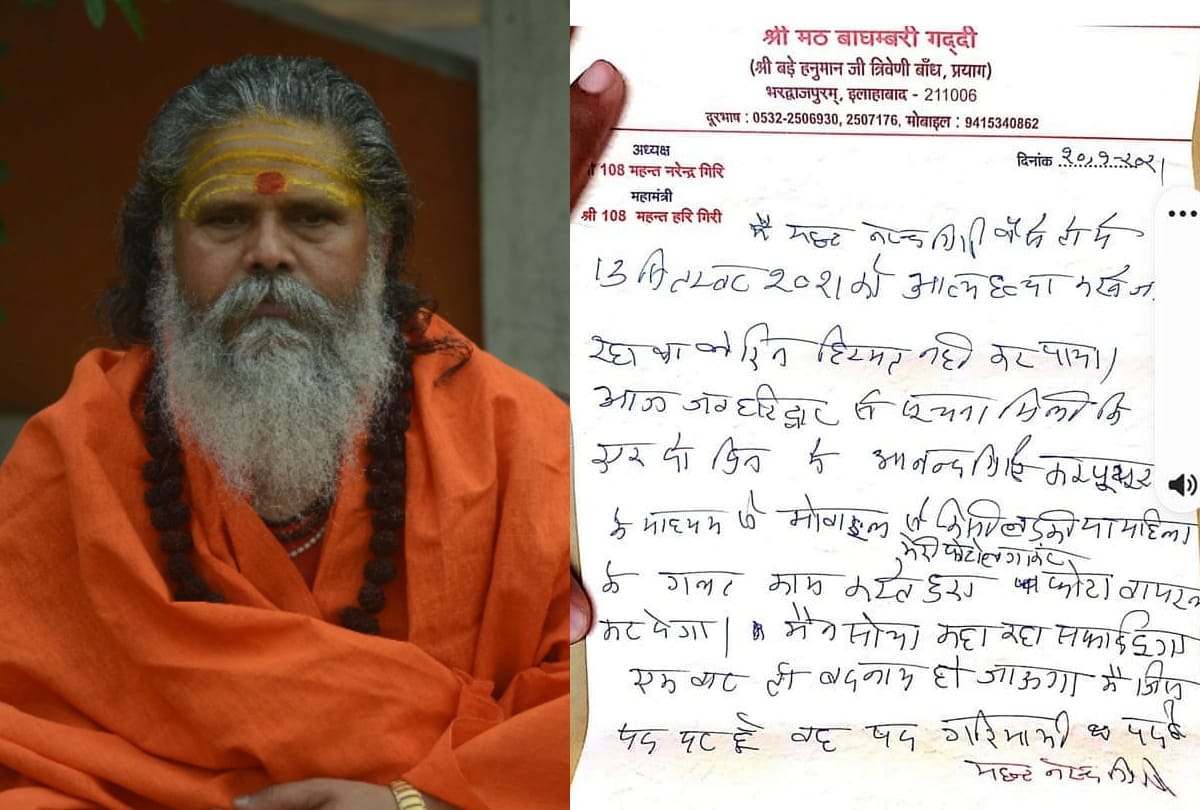 श्री मठ बाघम्बरी गद्दी
(श्री बड़े हनुमान जी त्रिवेणी बाँध, प्रयाग)
भरद्वाजपुरम्, इलाहाबाद - 211006
दूरभाष : 0532-2506930, 2507176, मोबाइल : 9415340862
अध्यक्ष
दिनांक २०.९.२०२१
108 महन्त नरेन्द्र गिरि
महामंत्री
श्री 108 महन्त हरि गिरी
मै महन्त नरेन्द्र गिरी वैसे तो मै
13 सितम्बर २०२१ को आत्महत्या करने जा
रहा था लेकिन हिम्मत नही कर पाया।
आज जब हरिद्वार से सूचना मिली कि
एक दो दिन मे आनन्द गिरि कम्प्यूटर
के माध्यम से मोबाइल से किसी लडकी या महिला
मेरी फोटो लगाकर
के गलत काम करते हुए फोटो वायरल
कर देगा। मैने सोचा कहा सफाई दूगा
एक बार तो बदनाम हो जाऊगा मै जिस
पद पर हूँ वह पद गरिमामयी पद है
महन्त नरेन्द्र गिरि